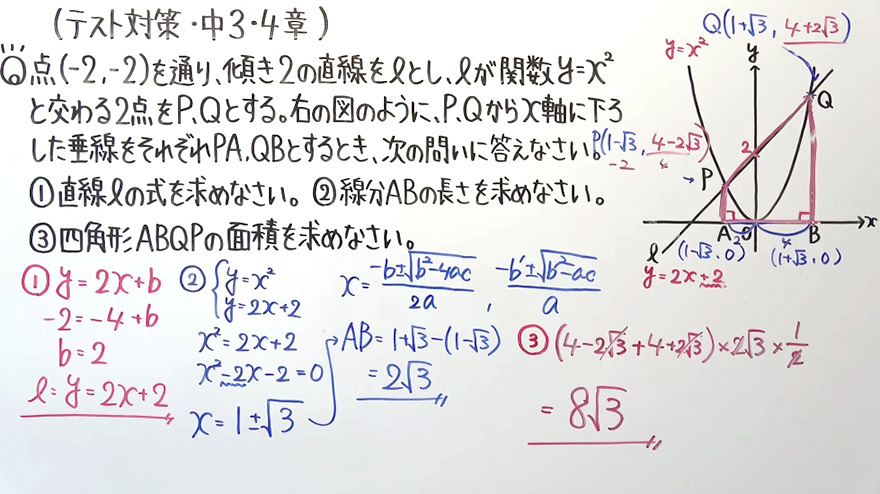 (テスト対策・中3・4章)
Q 点(-2,-2)を通り、傾き2の直線をℓとし、ℓが関数y=x²
と交わる2点をP、Qとする。右の図のように、P、Qからx軸に下ろ
した垂線をそれぞれPA、QBとするとき、次の問いに答えなさい。
①直線ℓの式を求めなさい。 ②線分ABの長さを求めなさい。
③四角形ABQPの面積を求めなさい。
① y=2x+b
-2=-4+b
b=2
ℓ=y=2x+2
② {y=x²
y=2x+2
x²=2x+2
x²-2x-2=0
x=1±√3
x= -b±√b²-4ac / 2a , -b'±√b'²-ac / a
AB=1+√3-(1-√3)
=2√3
③ (4-2√3+4+2√3)×2√3×1/2
=8√3
Q(1+√3, 4+2√3)
y=x²
y
Q
P(1-√3, 4-2√3)
-2
2
→P
A O B x
2 4
ℓ (1-√3, 0) (1+√3, 0)
y=2x+2